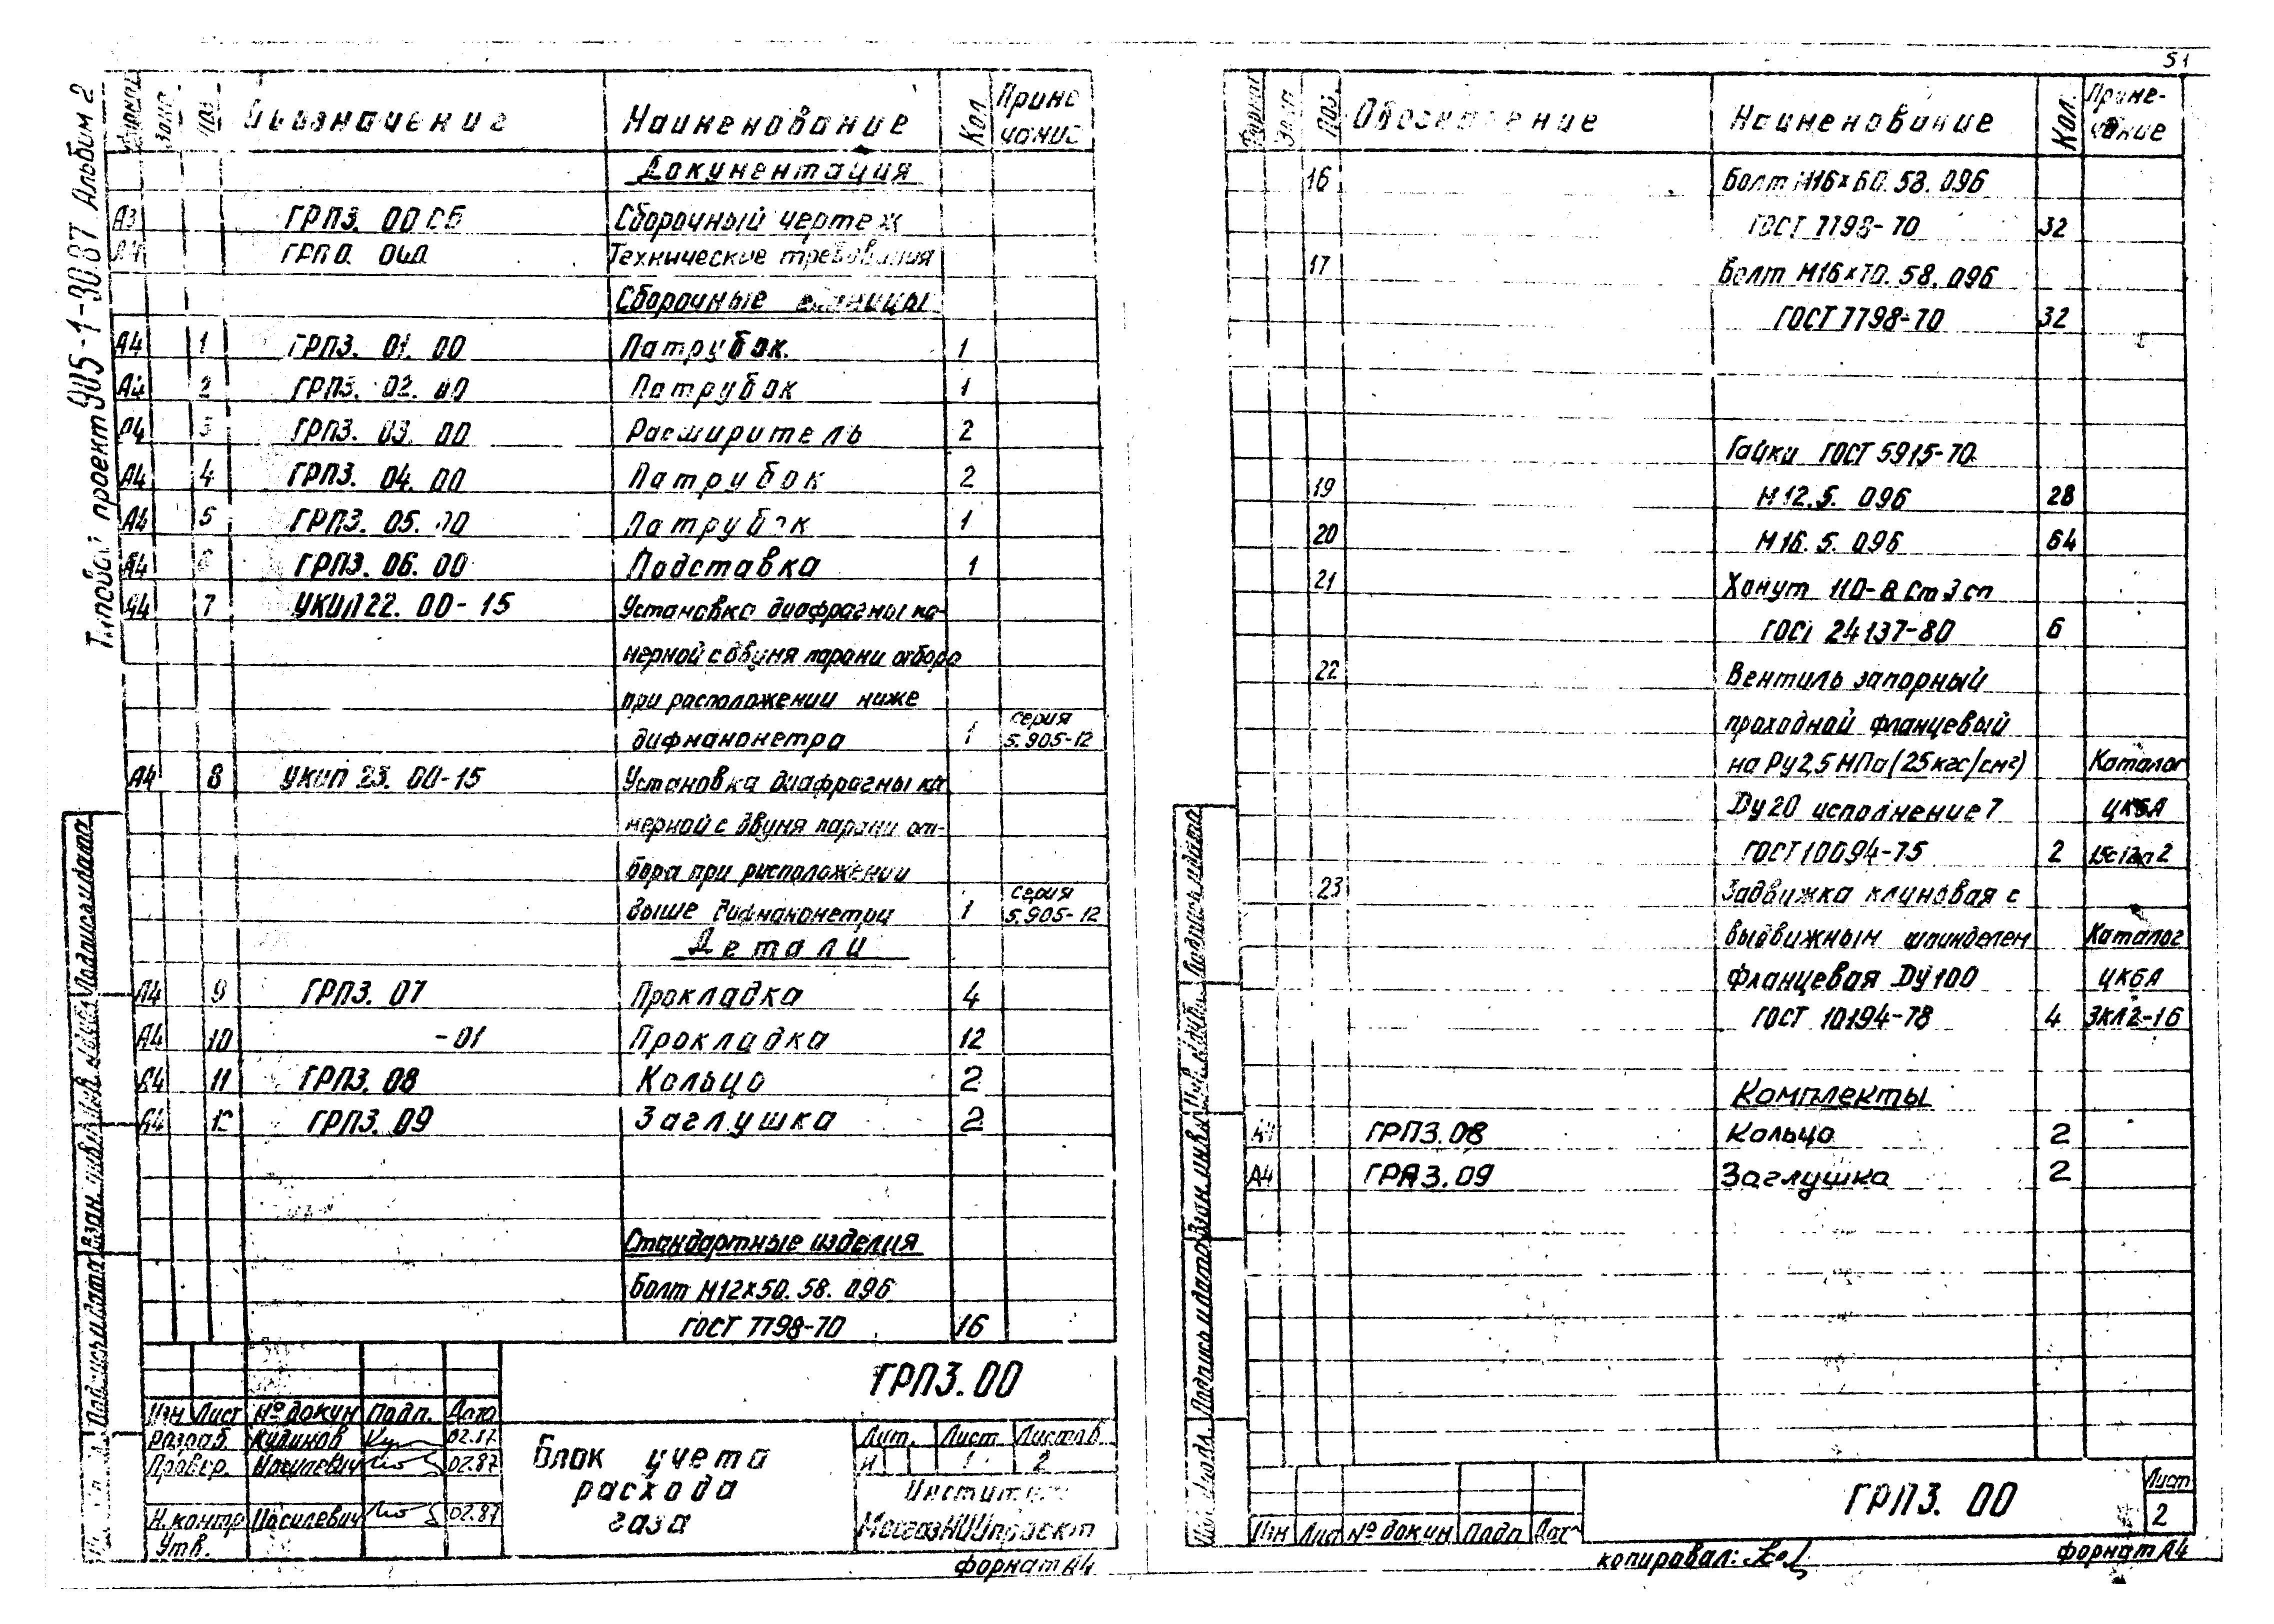 51
Типовой проект 905-1-30.87 Альбом 2
Формат Зона Поз. Обозначение Наименование Кол Приме
чание
Документация
А3 ГРП3. 00 СБ Сборочный чертеж
Технические требования
Сборочные единицы
А4 1 ГРП3. 01. 00 Патрубок 1
А4 2 ГРП3. 02. 00 Патрубок 1
А4 3 ГРП3. 03. 00 Расширитель 2
А4 4 ГРП3. 04. 00 Патрубок 2
А4 5 ГРП3. 05. 00 Патрубок 1
А4 6 ГРП3. 06. 00 Подставка 1
А4 7 УКИП22. 00-15 Установка диафрагмы ка-
мерной с двумя парами отбора
при расположении ниже
дифманометра 1 серия 5.905-12
А4 8 УКИП 23. 00-15 Установка диафрагмы ка
мерной с двумя парами от-
бора при расположении
выше дифманометра 1 серия 5.905-12
Детали
А4 9 ГРП3. 07 Прокладка 4
А4 10 -01 Прокладка 12
А4 11 ГРП3. 08 Кольцо 2
А4 12 ГРП3. 09 Заглушка 2
Стандартные изделия
Болт М12х50. 58. 096
ГОСТ 7798-70 16
ГРП3. 00
Изм Лист № докум Подп. Дата
Разраб. 02.87
Провер. 02.87
Н.контр 02.87
Утв.
Блок учета
расхода
газа
Лит. Лист Листов
И 1 2
Институт
МосгазНИИпроект
формат А4
Подпись и дата
Взам. инв.
Подпись и дата
Формат Зона Поз. Обозначение Наименование Кол. Приме-
чание
16 Болт М16х60. 58. 096
ГОСТ 7798-70 32
17 Болт М16х70. 58. 096
ГОСТ 7798-70 32
Гайки ГОСТ 5915-70
19 М12. 5. 096 28
20 М16. 5. 096 64
21 Хомут 110-В Ст3сп
ГОСТ 24137-80 6
22 Вентиль запорный
проходной фланцевый
на Ру2,5 МПа (25кгс/см²) Каталог
Dу20 исполнение 7 ЦКБА
ГОСТ 10094-75 2
23 Задвижка клиновая с
выдвижным шпинделем Каталог
фланцевая Dу100 ЦКБА
ГОСТ 10194-78 4 ЗКЛ2-16
Комплекты
А4 ГРП3.08 Кольцо 2
А4 ГРП3.09 Заглушка 2
Подпись и дата
Взам. инв.
Подпись и дата
Изм Лист № докум Подп Дат
ГРП3. 00
Лист
2
копировал:
формат А4